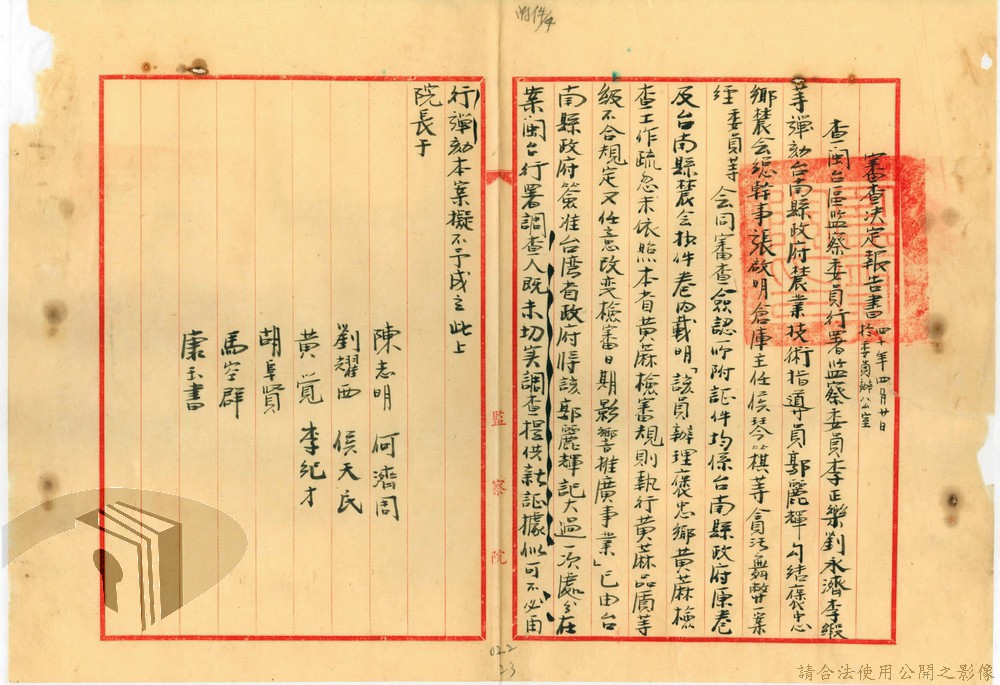 附件4
審查決定報告書 四十年四月廿日
於委員辦公室
查閩台區監察委員行署監察委員李正樂劉永濟李緞
等彈劾台南縣政府農業技術指導員郭麗輝勾結褒忠
鄉農会總幹事張啟明倉庫主任侯琴棋等貪污舞弊一案
經委員等会同審查僉認所附証件均係台南縣政府原卷
及台南縣農会抄件卷內載明「該員辦理褒忠鄉黃蔴檢
查工作疏忽未依照本省黃蔴檢審規則執行黃蔴品質等
級不合規定又任意改变檢審日期影響推廣事業」已由台
南縣政府簽准台湾省政府將該郭麗輝記大過一次處分在
案閩台行署調查人既未切实調查提供新証據似可不必再
行彈劾本案擬不予成立此上
院長于
陳志明 何濟周
劉耀西 侯天民
黃覺 李紀才
胡阜賢
馬空群
康玉書
監察院
022
23
請合法使用公開之影像